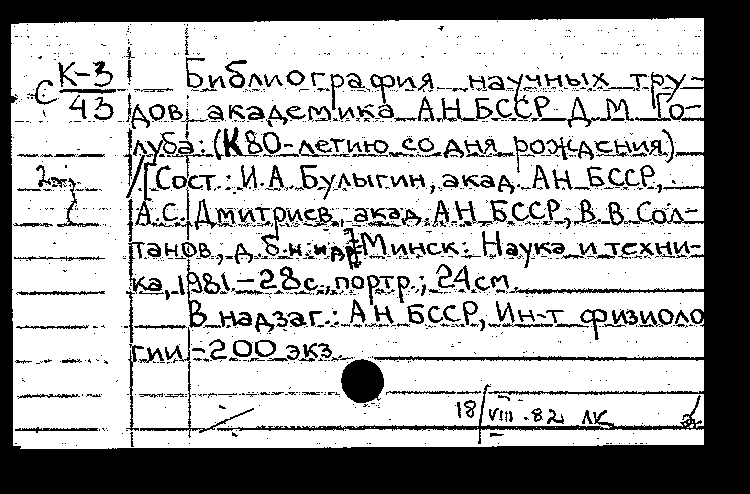 С К-3
43
Библиография научных тру-
дов академика АН БССР Д М Го-
луба: (К 80-летию со дня рождения)
/[Сост.: И.А. Булыгин, акад. АН БССР,
А.С. Дмитриев, акад. АН БССР, В В Сол-
танов, д. б. н. и др.] Минск: Наука и техни-
ка, 1981. - 28 с., портр.; 24 см.
В надзаг.: АН БССР, Ин-т физиоло
гии - 200 экз.
18/VIII.82 ЛК